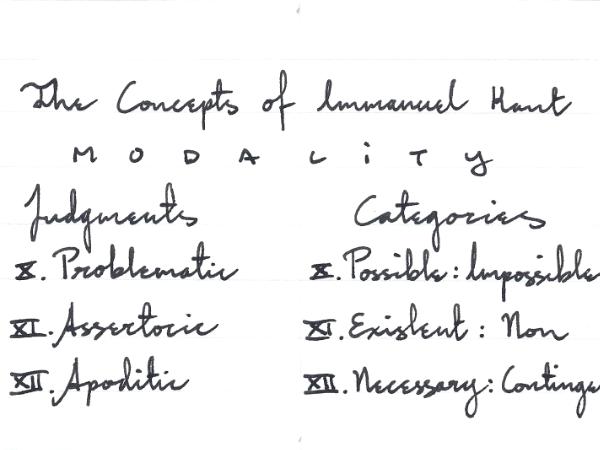 The Concepts of Immanuel Kant
MODALiTY
Judgments Categories
X. Problematic X. Possible : Impossible
XI. Assertoric XI. Existent : Non
XII. Apoditic XII. Necessary : Continge